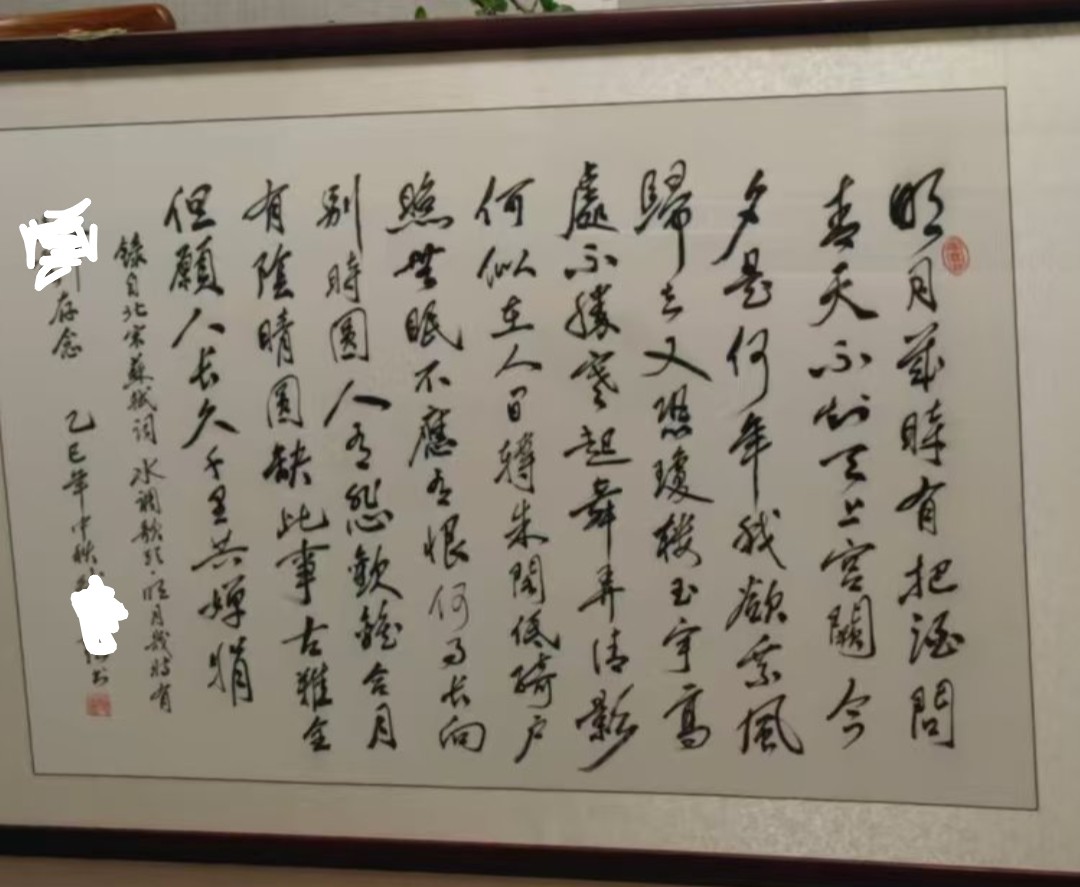 明月幾時有把酒問
青天不知天上宮闕今
夕是何年我欲乘風
歸去又恐瓊樓玉宇高
處不勝寒起舞弄清影
何似在人間轉朱閣低綺戶
照無眠不應有恨何事長向
別時圓人有悲歡離合月
有陰晴圓缺此事古難全
但願人長久千里共嬋娟
錄自北宋蘇軾詞水調歌頭·明月幾時有
存念
乙巳年中秋
书